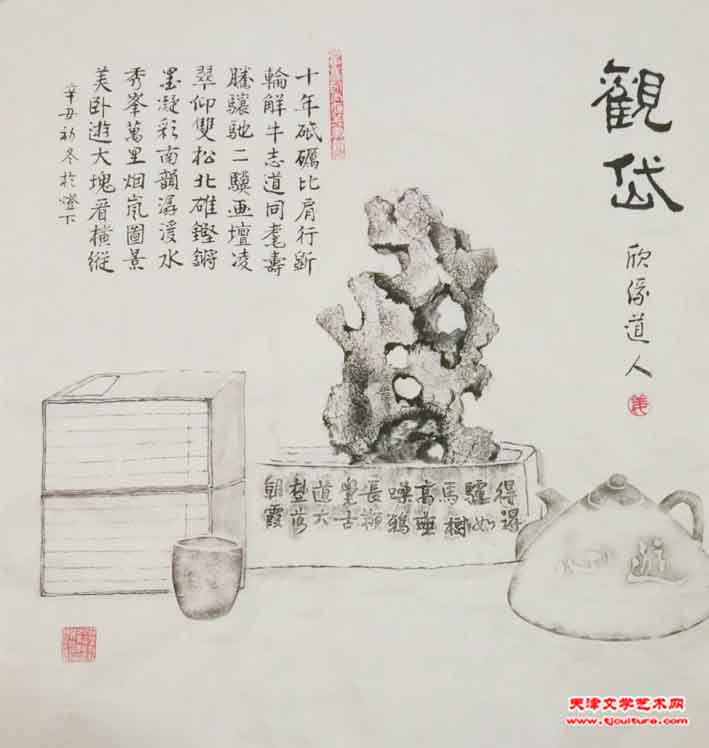 觀岱
欣道人
十年砥礪比肩行斵
輪解牛志道同耄壽
騰驤馳二驥画壇凌
翠仰雙松北碓鏗鏘
墨凝彩南韻潺湲水
秀峯萬里烟嵐圖景
美卧遊大塊看橫縱
辛丑初冬於燈下
得得
驢如
馬樹
高垂
噪鴉
長柳
古
道六
落
朝霞
天津文学艺术网
www.tjculture.com